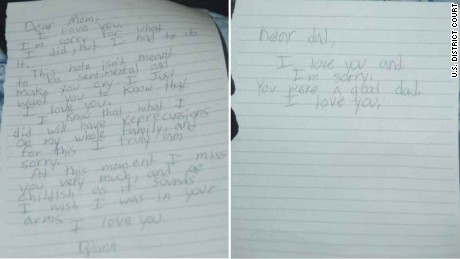 Dear Mom,
I love you.
I'm sorry for what
I did, but I had to do
it.
This note isn't meant
to be sentimental and
make you cry. I just
want you to know that
I love you.
I know that what I
did will have repercussions
on my whole family, and
for this I truly am
sorry.
At this moment I miss
you very much, and as
childish as it sounds
I wish I was in your
arms.
I love you.
Dear dad,
I love you and
I'm sorry.
You were a good dad.
I love you.
U.S. DISTRICT COURT